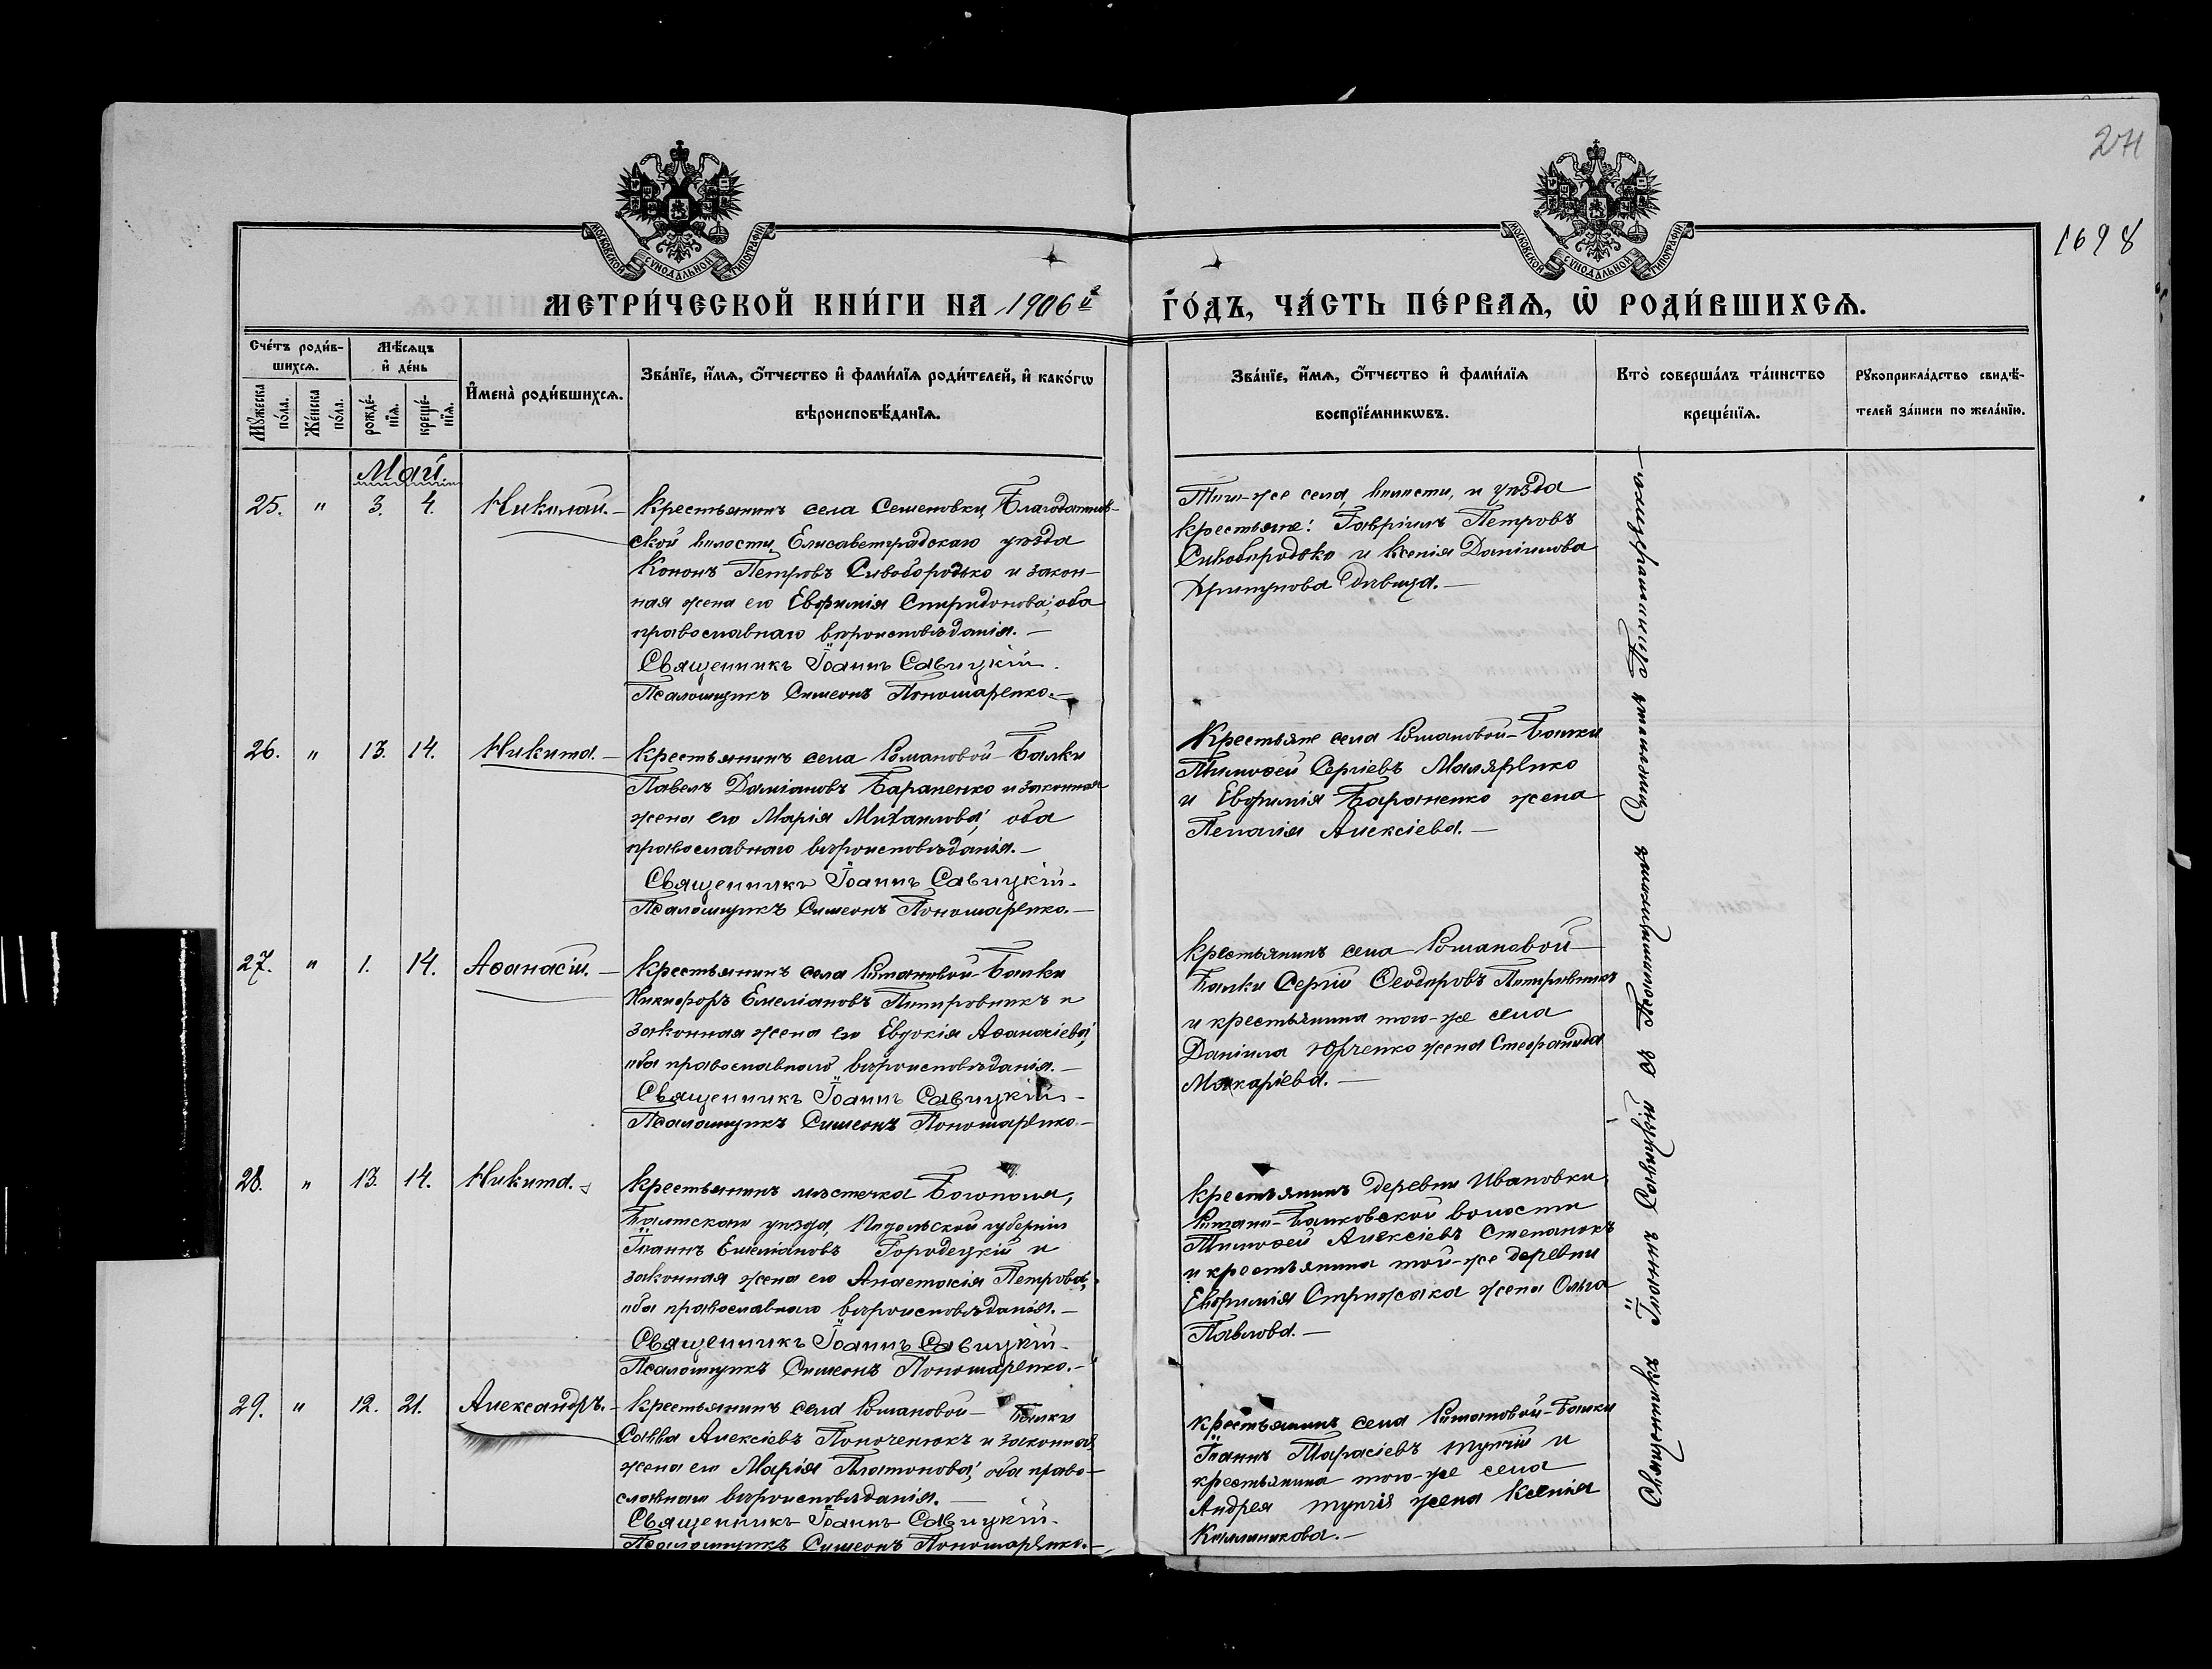 24
1698
МОСКОВСКОЙ СУНОДАЛЬНОЙ ТИПОГРАФІИ
МОСКОВСКОЙ СУНОДАЛЬНОЙ ТИПОГРАФІИ
МЕТРИ́ЧЕСКОЙ КНИ́ГИ НА 1906й
ГО́ДЪ, ЧА́СТЬ ПЕ́РВАѦ, Ѽ РОДИ́ВШИХСѦ.
Сче́тъ роди́в-
шихсѧ.
Мꙋжеска по́ла.
Же́нска по́ла.
Мѣ́сѧцъ
и҆ де́нь
рожде́-
нїѧ.
креще́-
нїѧ.
И҆мена̀ роди́вшихсѧ.
Зва́нїе, и҆́мѧ, ѻ҆́тчество и҆ фами́лїѧ роди́телей, и҆ како́гѡ
вѣроисповѣ́данїѧ.
Зва́нїе, и҆́мѧ, ѻ҆́тчество и҆ фами́лїѧ
воспрїе́мникѡвъ.
Кто̀ соверша́лъ та́инство
креще́нїѧ.
Рꙋкоприкла́дство свидѣ́-
телей за́писи по жела́нїю.
Май.
25. " 3. 4. Николай.
Крестьянинъ села Семеновки, Благодатнов-
ской волости, Елисаветградскаго уѣзда
Кононъ Петровъ Сивобородько и закон-
ная жена его Евфимія Спиридонова, оба
православнаго вѣроисповѣданія. —
Священникъ Іоаннъ Савицкій.
Псаломщикъ Симеонъ Пономаренко. —
Того-же села, волости, и уѣзда
крестьяне: Гавріилъ Петровъ
Сивобородько и Ксенія Даніилова
девица. —
26. " 13. 14. Никита. —
Крестьянинъ села Романовой-Балки
Павелъ Даміановъ Бараненко и законная
жена его Марія Михаилова, оба
православнаго вѣроисповѣданія. —
Священникъ Іоаннъ Савицкій.
Псаломщикъ Симеонъ Пономаренко. —
Крестьяне села Романовой-Балки
Тимоѳей Сергіевъ Маляренко
и Евфимія Бараненко жена
Пелагія Алексіева. —
27. " 1. 14. Аѳанасій. —
Крестьянинъ села Романовой-Балки
Никифоръ Емеліановъ и
законная жена его Евдокія Аѳанасіева,
оба православнаго вѣроисповѣданія. —
Священникъ Іоаннъ Савицкій.
Псаломщикъ Симеонъ Пономаренко. —
Крестьянинъ села Романовой-
Балки Сергій Ѳеодоровъ
и крестьянина того-же села
Даніила Юрченко жена Стефанида
Макаріева. —
28. " 13. 14. Никита.
Крестьянинъ мѣстечка Богополя,
Балтскаго уѣзда, Подольской губерніи
Іоаннъ Емеліановъ Городецкій и
законная жена его Анастасія Петрова,
оба православнаго вѣроисповѣданія. —
Священникъ Іоаннъ Савицкій.
Псаломщикъ Симеонъ Пономаренко. —
Крестьянинъ деревни Ивановки
Романо-Балковской волости
Тимоѳей Алексіевъ Степанокъ
и крестьянина той-же деревни
Евфимія Стрижака жена Ольга
Павлова. —
29. " 12. 21. Александръ. —
Крестьянинъ села Романовой-Балки
Савва Алексіевъ Попоченюкъ и законная
жена его Марія Платонова, оба право-
славнаго вѣроисповѣданія. —
Священникъ Іоаннъ Савицкій.
Псаломщикъ Симеонъ Пономаренко. —
Крестьянинъ села Романовой-Балки
Іоаннъ Тарасіевъ Тупчій и
крестьянина того-же села
Андрея Тупчія жена Ксенія
Каллиникова. —
Священникъ Іоаннъ Савицкій съ Псаломщикомъ Симеономъ Пономаренкомъ. —